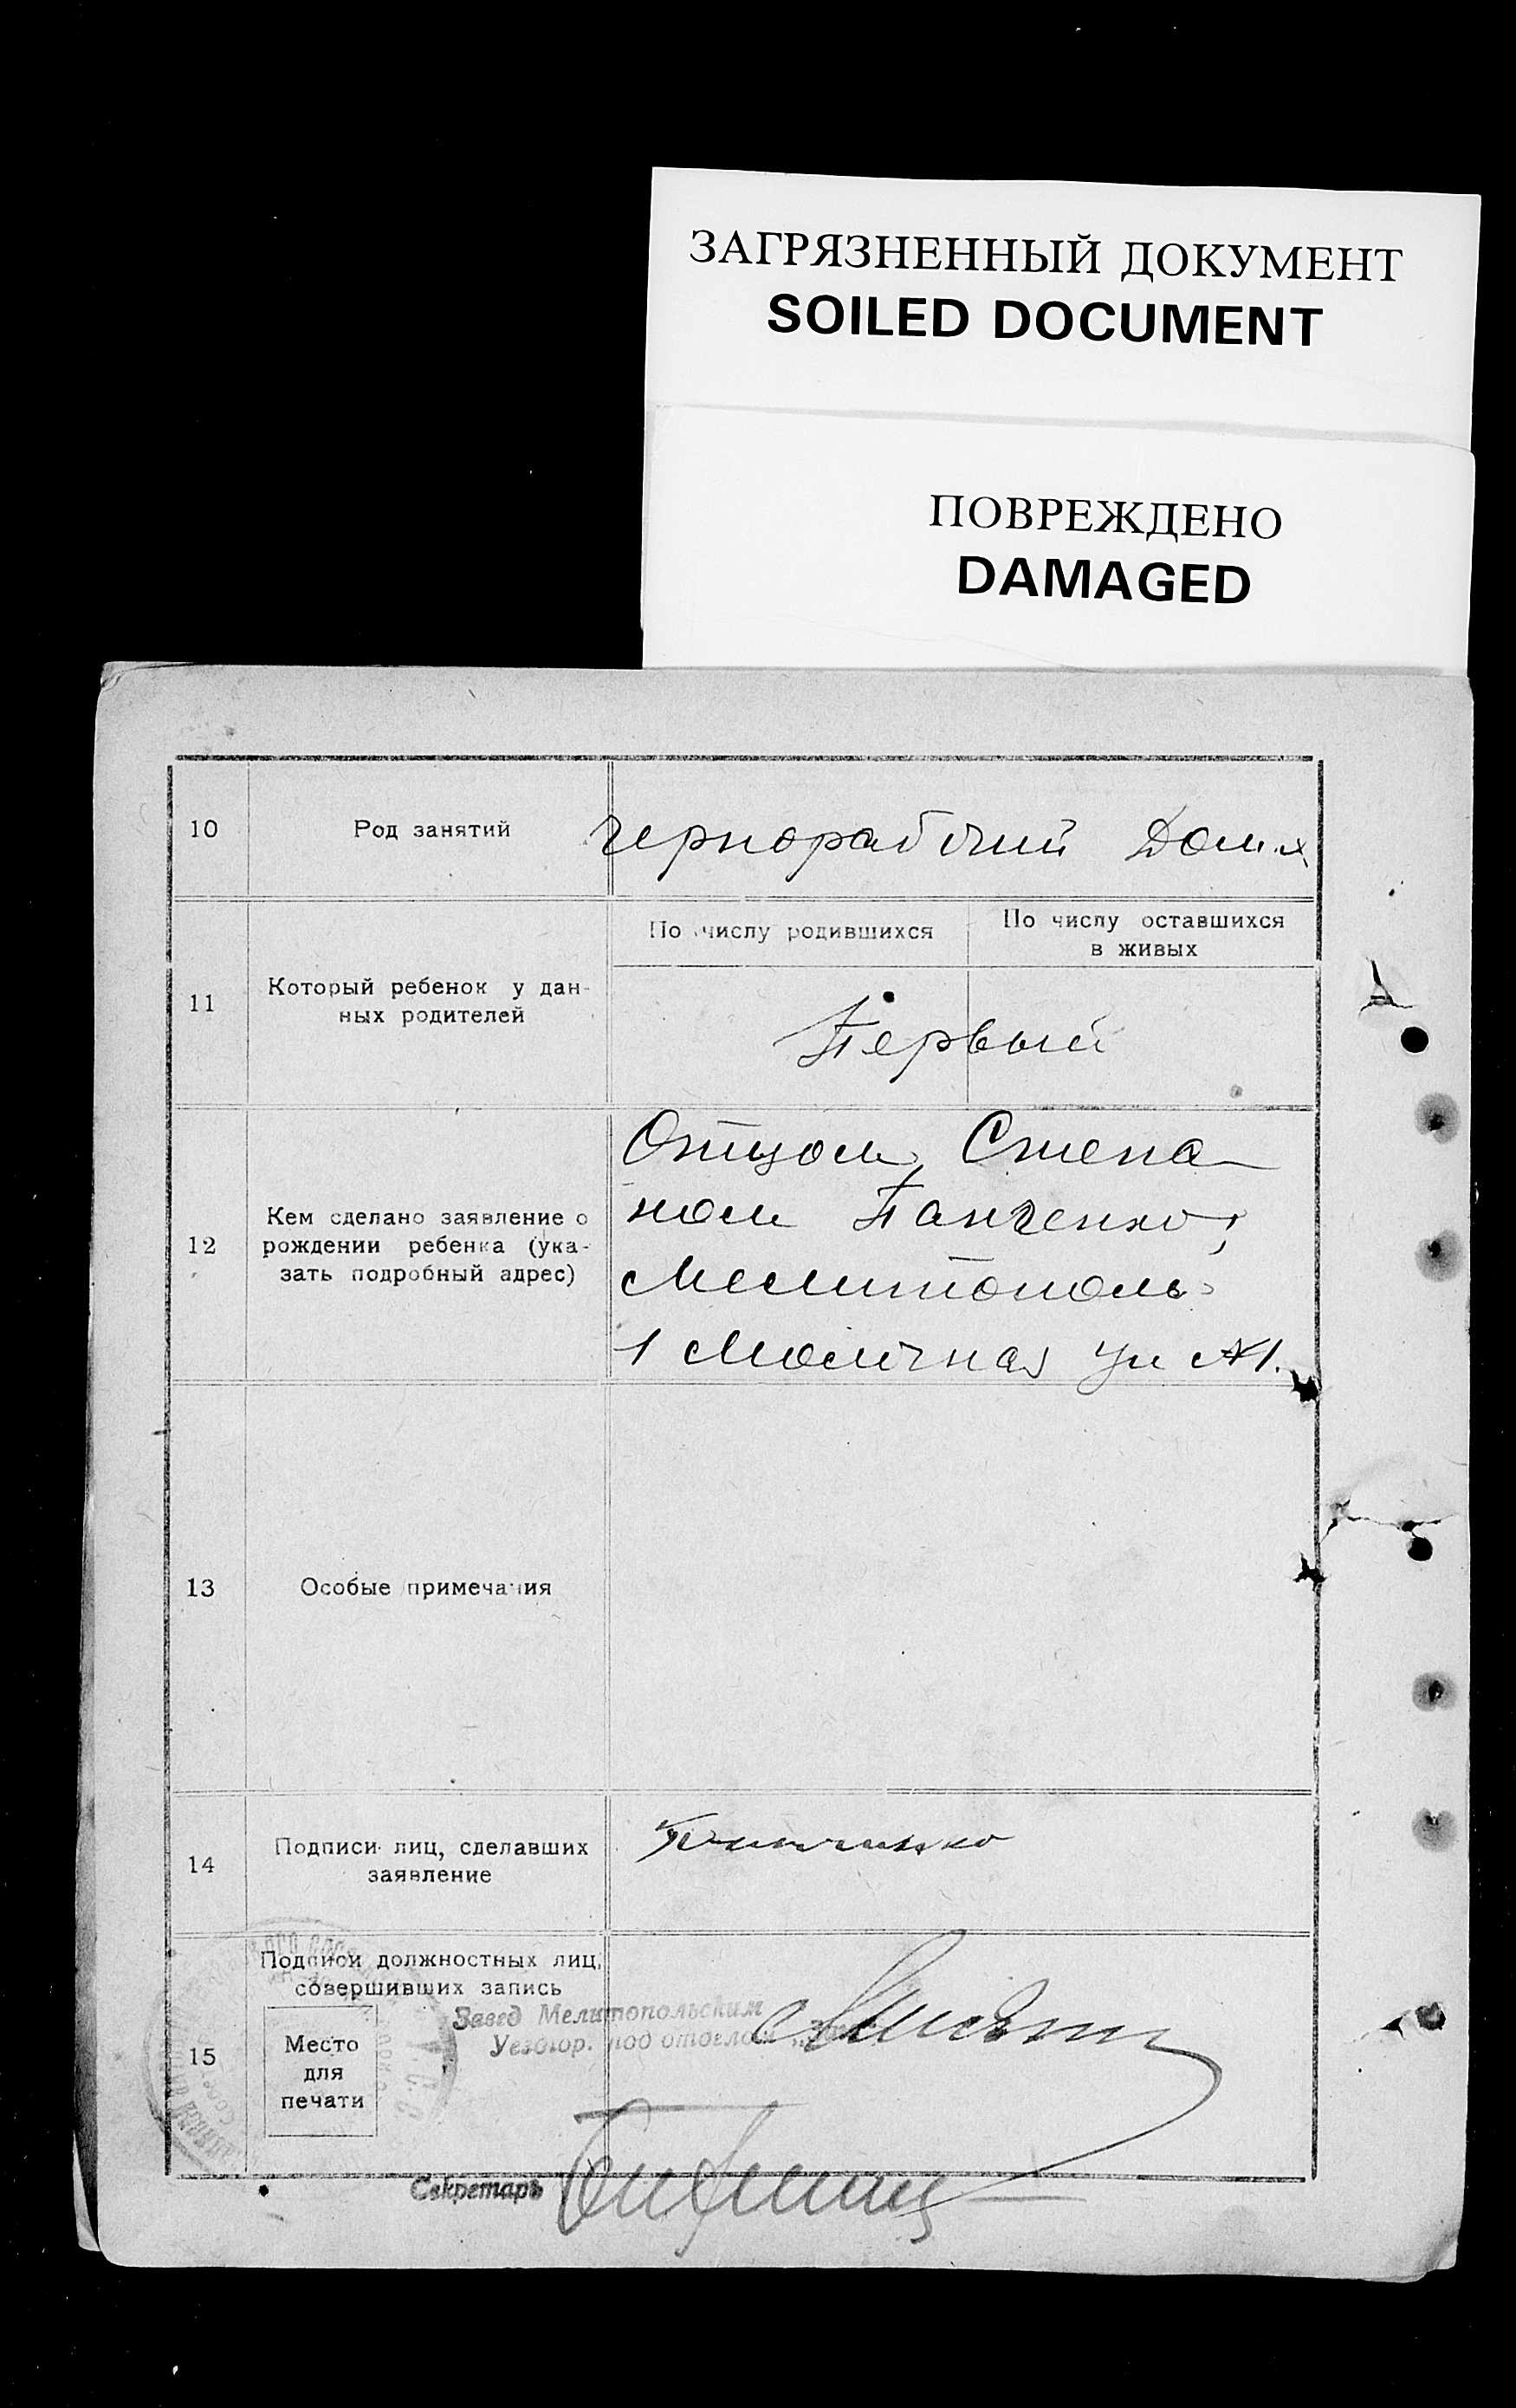 ЗАГРЯЗНЕННЫЙ ДОКУМЕНТ
SOILED DOCUMENT
ПОВРЕЖДЕНО
DAMAGED
10
Род занятий
чернорабочий Дом.х
11
Который ребенок у дан-
ных родителей
По числу родившихся
По числу оставшихся
в живых
Первый
12
Кем сделано заявление о
рождении ребенка (ука-
зать подробный адрес)
Отцом Степа
ном Панченко,
Мелитополь
1 Молочная ул №1.
13
Особые примечания
14
Подписи лиц, сделавших
заявление
Панченко
15
Подписи должностных лиц,
совершивших запись
Место
для
печати
Завед Мелитопольским
Уездгор. подотделом
Секретарь